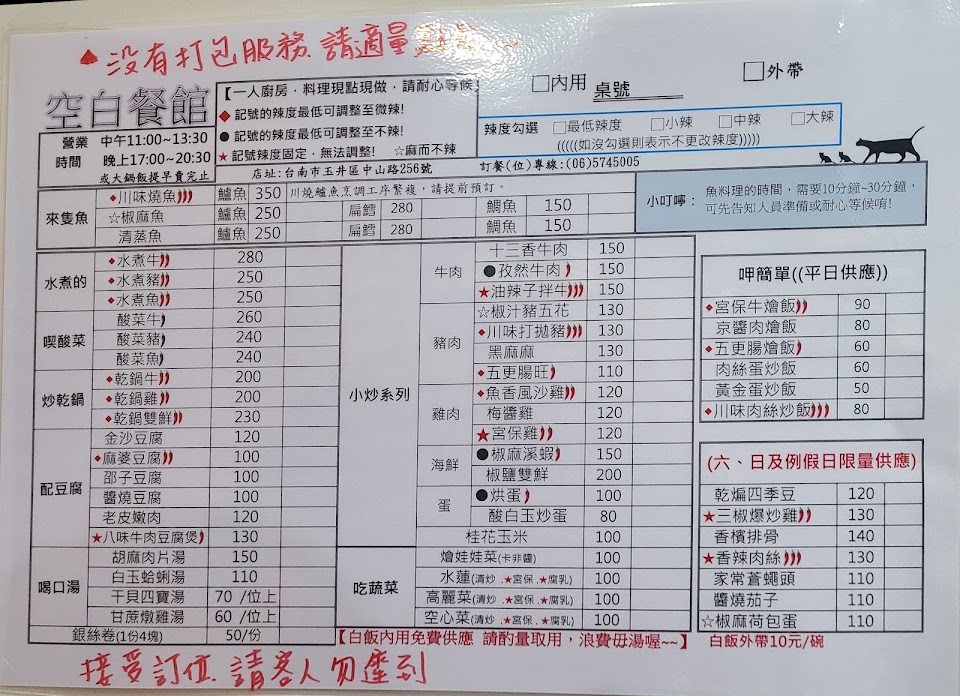 ♠ 沒有打包服務 請適量
空白餐館
營業時間 中午11:00~13:30
晚上17:00~20:30
或大鍋飯提早賣完止
【一人廚房，料理現點現做，請耐心等候
◆ 記號的辣度最低可調整至微辣!
● 記號的辣度最低可調整至不辣!
★ 記號辣度固定，無法調整! ☆麻而不辣
□內用 桌號 □外帶
辣度勾選 □最低辣度 □小辣 □中辣 □大辣
(((((如沒勾選則表示不更改辣度)))))
店址:台南市玉井區中山路256號 訂餐(位)專線:(06)5745005
來隻魚
◆川味燒魚 鱸魚 350 川燒鱸魚烹調工序繁複，請提前預訂。
☆椒麻魚 鱸魚 250 扁鱈 280 鯛魚 150
清蒸魚 鱸魚 250 扁鱈 280 鯛魚 150
小叮嚀： 魚料理的時間，需要10分鐘~30分鐘，
可先告知人員準備或耐心等候唷!
水煮的
◆水煮牛 280
◆水煮豬 250
◆水煮魚 250
喫酸菜
酸菜牛 260
酸菜豬 240
酸菜魚 240
炒乾鍋
◆乾鍋牛 200
◆乾鍋雞 200
◆乾鍋雙鮮 230
配豆腐
金沙豆腐 120
◆麻婆豆腐 100
邵子豆腐 100
醬燒豆腐 100
老皮嫩肉 120
★八味牛肉豆腐煲 130
喝口湯
胡麻肉片湯 150
白玉蛤蜊湯 110
干貝四寶湯 70 /位上
甘蔗燉雞湯 60 /位上
銀絲卷(1份4塊) 50/份
小炒系列
牛肉
十三香牛肉 150
●孜然牛肉 150
★油辣子拌牛 150
豬肉
☆椒汁豬五花 130
◆川味打拋豬 130
黑麻麻 130
◆五更腸旺 110
雞肉
◆魚香風沙雞 120
梅醬雞 120
★宮保雞 120
海鮮
●椒麻溪蝦 150
椒鹽雙鮮 200
蛋
●烘蛋 100
酸白玉炒蛋 80
桂花玉米 100
吃蔬菜
燴娃娃菜(卡非醬) 100
水蓮(清炒.★宮保.★腐乳) 100
高麗菜(清炒.★宮保.★腐乳) 100
空心菜(清炒.★宮保.★腐乳) 100
【白飯內用免費供應 請酌量取用，浪費毋湯喔~~】
呷簡單((平日供應))
◆宮保牛燴飯 90
京醬肉燴飯 80
◆五更腸燴飯 60
肉絲蛋炒飯 60
黃金蛋炒飯 50
◆川味肉絲炒飯 80
(六、日及例假日限量供應)
乾煸四季豆 120
★三椒爆炒雞 130
香檳排骨 140
★香辣肉絲 130
家常蒼蠅頭 110
醬燒茄子 110
☆椒麻荷包蛋 110
白飯外帶10元/碗
接受訂位 請客人勿遲到